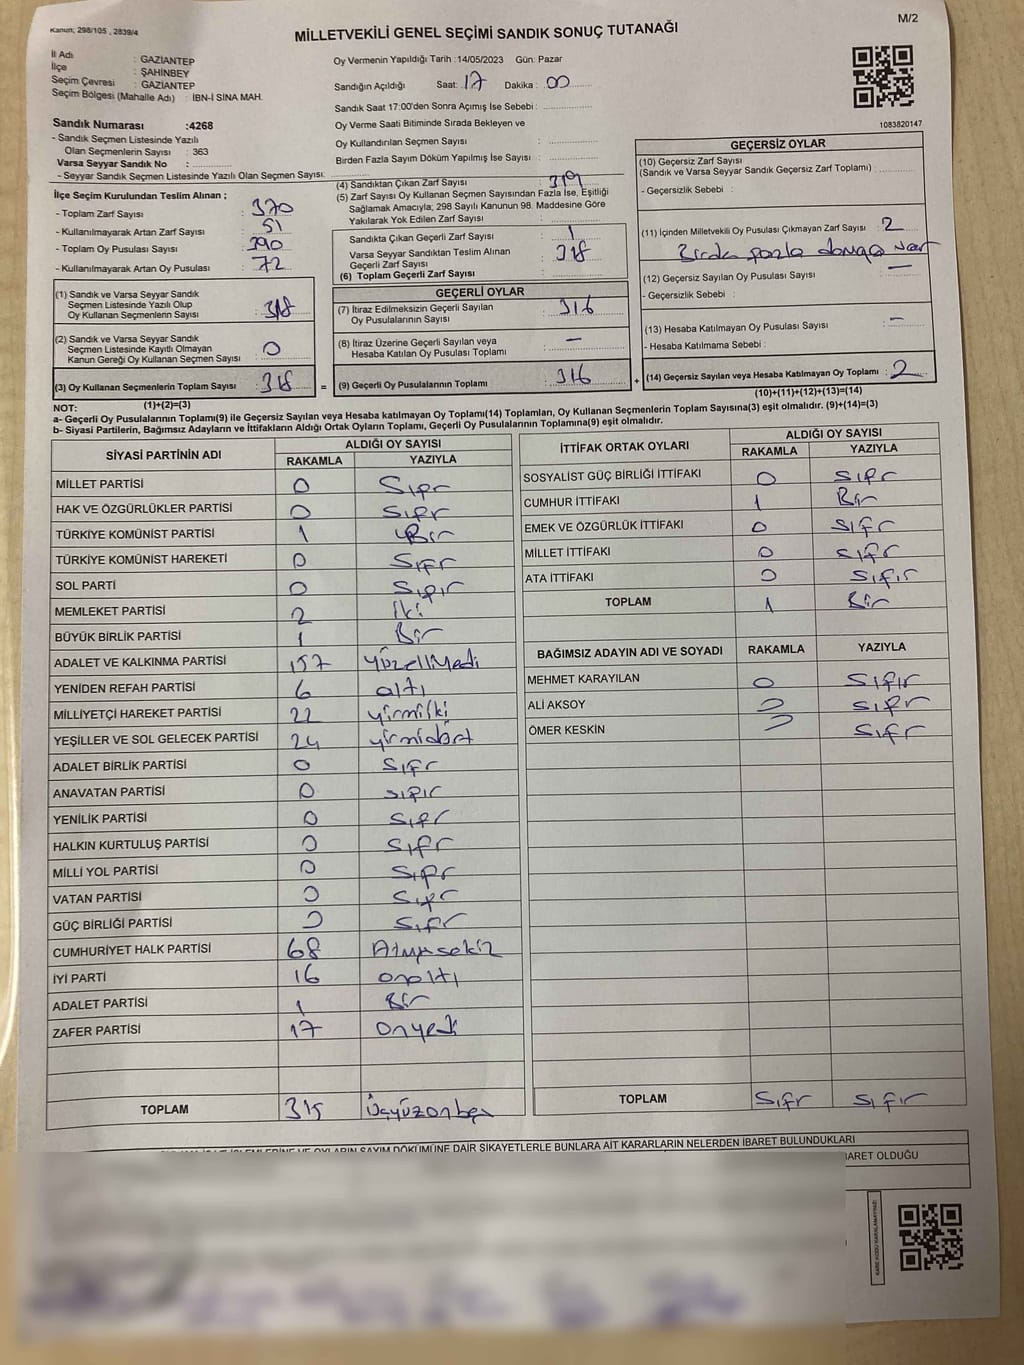 Kanun; 298/105 , 2839/4
M/2
MİLLETVEKİLİ GENEL SEÇİMİ SANDIK SONUÇ TUTANAĞI
İl Adı : GAZİANTEP
İlçe : ŞAHİNBEY
Seçim Çevresi : GAZİANTEP
Seçim Bölgesi (Mahalle Adı) : İBN-İ SİNA MAH.
Sandık Numarası :4268
- Sandık Seçmen Listesinde Yazılı
Olan Seçmenlerin Sayısı : 363
Varsa Seyyar Sandık No :
- Seyyar Sandık Seçmen Listesinde Yazılı Olan Seçmen Sayısı:
Oy Vermenin Yapıldığı Tarih :14/05/2023 Gün: Pazar
Sandığın Açıldığı Saat: 17 Dakika : 00
Sandık Saat 17:00'den Sonra Açımış İse Sebebi :
Oy Verme Saati Bitiminde Sırada Bekleyen ve
Oy Kullandırılan Seçmen Sayısı :
Birden Fazla Sayım Döküm Yapılmış İse Sayısı :
1083820147
İlçe Seçim Kurulundan Teslim Alınan ;
- Toplam Zarf Sayısı : 370
- Kullanılmayarak Artan Zarf Sayısı : 51
- Toplam Oy Pusulası Sayısı : 390
- Kullanılmayarak Artan Oy Pusulası : 72
(1) Sandık ve Varsa Seyyar Sandık
Seçmen Listesinde Yazılı Olup
Oy Kullanan Seçmenlerin Sayısı : 318
(2) Sandık ve Varsa Seyyar Sandık
Seçmen Listesinde Kayıtlı Olmayan
Kanun Gereği Oy Kullanan Seçmen Sayısı : 0
(3) Oy Kullanan Seçmenlerin Toplam Sayısı : 318 =
(1)+(2)=(3)
(4) Sandıktan Çıkan Zarf Sayısı : 319
(5) Zarf Sayısı Oy Kullanan Seçmen Sayısından Fazla İse, Eşitliği
Sağlamak Amacıyla; 298 Sayılı Kanunun 98. Maddesine Göre
Yakılarak Yok Edilen Zarf Sayısı : 1
Sandıkta Çıkan Geçerli Zarf Sayısı
Varsa Seyyar Sandıktan Teslim Alınan
Geçerli Zarf Sayısı : 318
(6) Toplam Geçerli Zarf Sayısı :
GEÇERLİ OYLAR
(7) İtiraz Edilmeksizin Geçerli Sayılan
Oy Pusulalarının Sayısı : 316
(8) İtiraz Üzerine Geçerli Sayılan veya
Hesaba Katılan Oy Pusulası Toplamı : -
(9) Geçerli Oy Pusulalarının Toplamı : 316 +
GEÇERSİZ OYLAR
(10) Geçersiz Zarf Sayısı
(Sandık ve Varsa Seyyar Sandık Geçersiz Zarf Toplamı) :
- Geçersizlik Sebebi :
(11) İçinden Milletvekili Oy Pusulası Çıkmayan Zarf Sayısı : 2
Birden fazla damga var
(12) Geçersiz Sayılan Oy Pusulası Sayısı : -
- Geçersizlik Sebebi :
(13) Hesaba Katılmayan Oy Pusulası Sayısı : -
- Hesaba Katılmama Sebebi :
(14) Geçersiz Sayılan veya Hesaba Katılmayan Oy Toplamı : 2
(10)+(11)+(12)+(13)=(14)
NOT:
a- Geçerli Oy Pusulalarının Toplamı(9) ile Geçersiz Sayılan veya Hesaba katılmayan Oy Toplamı(14) Toplamları, Oy Kullanan Seçmenlerin Toplam Sayısına(3) eşit olmalıdır. (9)+(14)=(3)
b- Siyasi Partilerin, Bağımsız Adayların ve İttifakların Aldığı Ortak Oyların Toplamı, Geçerli Oy Pusulalarının Toplamına(9) eşit olmalıdır.
SİYASİ PARTİNİN ADI
ALDIĞI OY SAYISI
RAKAMLA YAZIYLA
MİLLET PARTİSİ 0 Sıfır
HAK VE ÖZGÜRLÜKLER PARTİSİ 0 Sıfır
TÜRKİYE KOMÜNİST PARTİSİ 1 Bir
TÜRKİYE KOMÜNİST HAREKETİ 0 Sıfır
SOL PARTİ 0 Sıfır
MEMLEKET PARTİSİ 2 iki
BÜYÜK BİRLİK PARTİSİ 1 Bir
ADALET VE KALKINMA PARTİSİ 157 Yüzelliyedi
YENİDEN REFAH PARTİSİ 6 altı
MİLLİYETÇİ HAREKET PARTİSİ 22 yirmiiki
YEŞİLLER VE SOL GELECEK PARTİSİ 24 yirmidört
ADALET BİRLİK PARTİSİ 0 Sıfır
ANAVATAN PARTİSİ 0 sıfır
YENİLİK PARTİSİ 0 Sıfır
HALKIN KURTULUŞ PARTİSİ 0 Sıfır
MİLLİ YOL PARTİSİ 0 Sıfır
VATAN PARTİSİ 0 Sıfır
GÜÇ BİRLİĞİ PARTİSİ 0 Sıfır
CUMHURİYET HALK PARTİSİ 68 Atmışsekiz
İYİ PARTİ 16 onaltı
ADALET PARTİSİ 1 Bir
ZAFER PARTİSİ 17 Onyedi
TOPLAM 315 Üçyüzonbeş
İTTİFAK ORTAK OYLARI
ALDIĞI OY SAYISI
RAKAMLA YAZIYLA
SOSYALİST GÜÇ BİRLİĞİ İTTİFAKI 0 Sıfır
CUMHUR İTTİFAKI 1 Bir
EMEK VE ÖZGÜRLÜK İTTİFAKI 0 Sıfır
MİLLET İTTİFAKI 0 sıfır
ATA İTTİFAKI 0 Sıfır
TOPLAM 1 Bir
BAĞIMSIZ ADAYIN ADI VE SOYADI RAKAMLA YAZIYLA
MEHMET KARAYILAN 0 Sıfır
ALİ AKSOY 0 Sıfır
ÖMER KESKİN 0 Sıfır
TOPLAM Sıfır Sıfır
OYLARIN SAYIM DÖKÜMÜNE DAİR ŞİKAYETLERLE BUNLARA AİT KARARLARIN NELERDEN İBARET BULUNDUKLARI
OLDUĞU